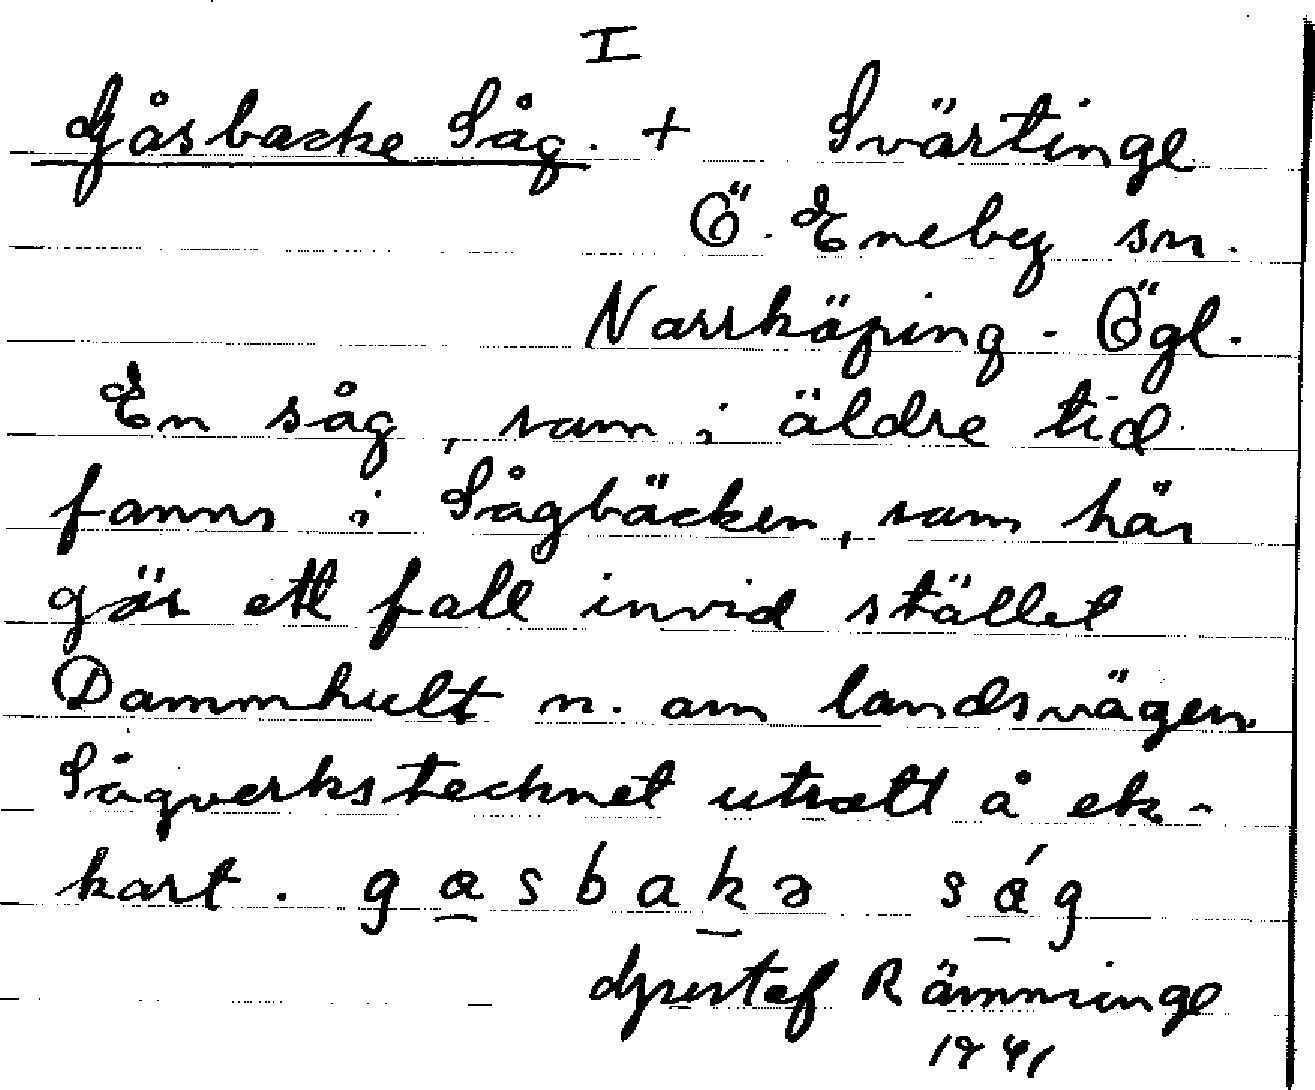 I
Gåsbacke Såg. + Svärtinge
Ö. Eneby sn.
Norrköping - Ögl.
En såg, som i äldre tid
fanns i Sågbäcken, som här
gör ett fall invid stället
Dammhult n. om landsvägen.
Sågverkstecknet utsatt å ek-
kart. gasbakə ság
Gustaf Rämninge
1941